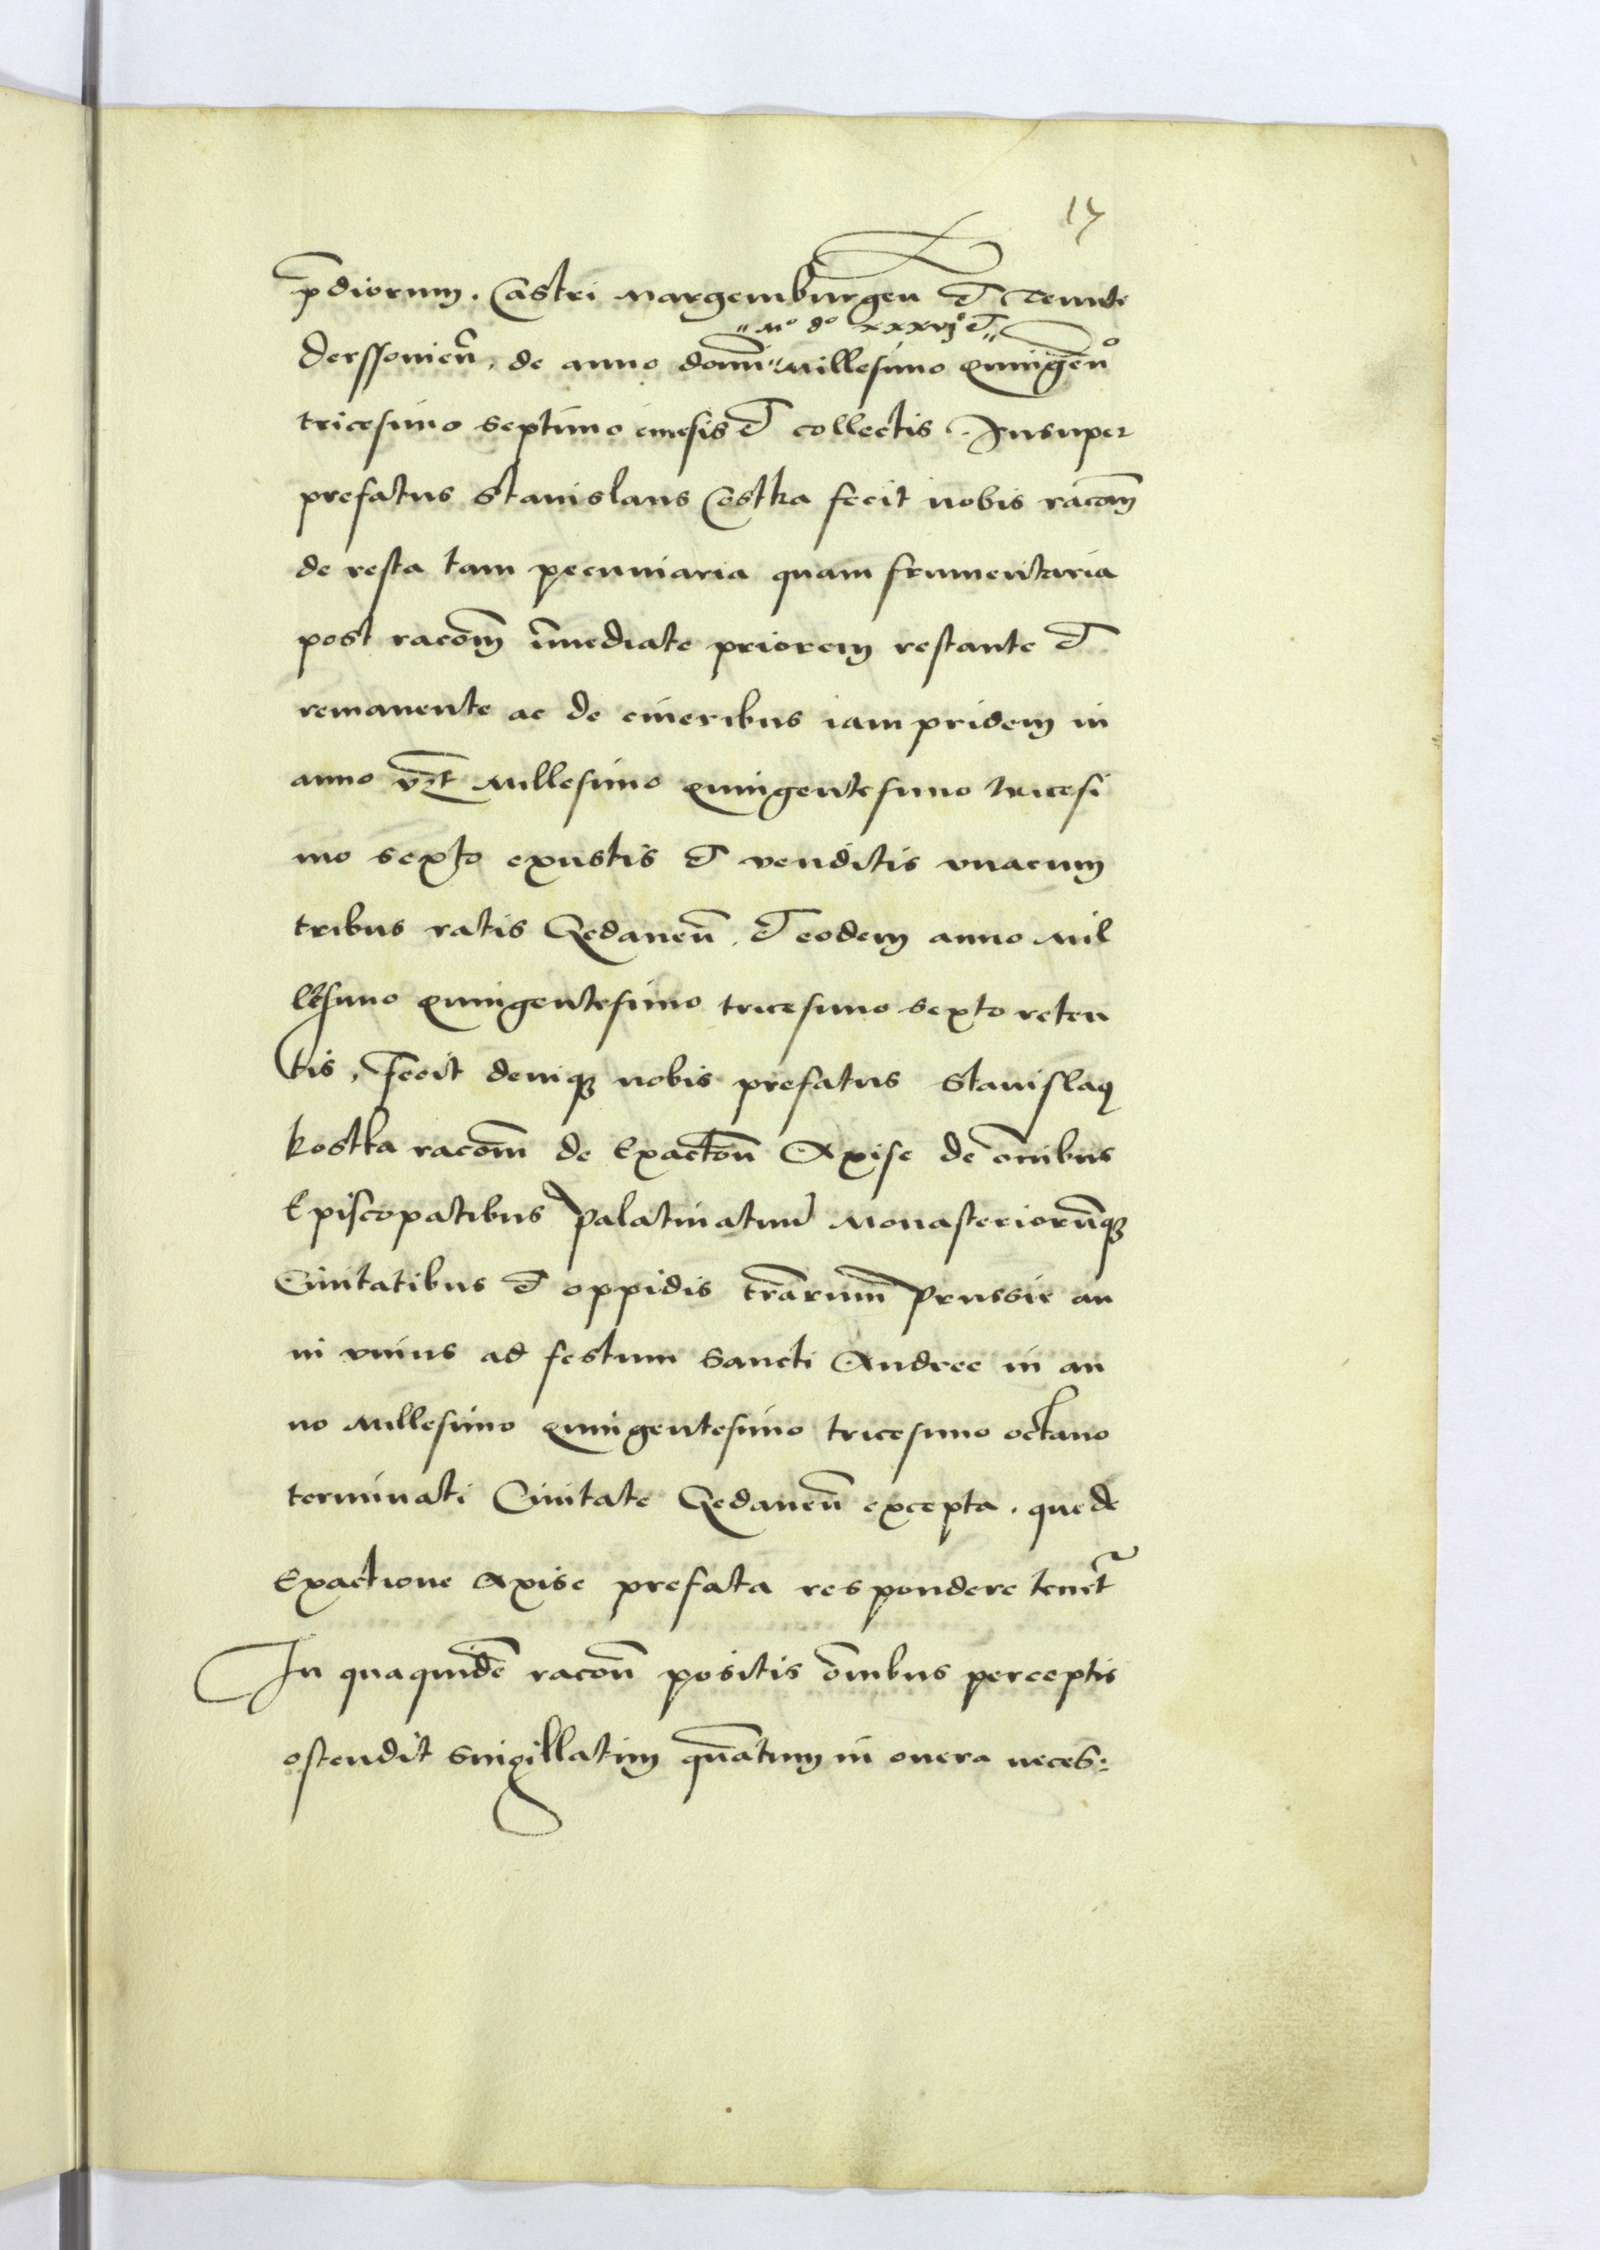 17
p̄diorum. Castri Margemburgen̄ et Tenute
"Mº dº xxxvjº et"
derssovien̄. de anno domī "Millesimo Quingenº
tricesimo septimo emesis et collectis. Insuper
prefatus Stanislaus Costka fecit nobis racōm
de resta tam pecuniaria quam frumentaria
post racōm īmediate priorem restante et
remanente ac de cineribus iam pridem in
anno vꝫt Millesimo Quingentesimo tricesi
mo sexto exustis et venditis vnacum
tribus ratis Gedanen̄. et eodem anno Mil
lesimo Quingentesimo tricesimo sexto reten
tis, Fecit deniqꝫ nobis prefatus Stanislaꝰ
kostka racōm de Exactōn Axise de om̄ibus
Episcopatibus Palatinatuū Monasteriorūqꝫ
Ciuitatibus et oppidis tr̄arum Prussie an
ni vnius ad festum Sancti Andree in an
no Millesimo Quingentesimo tricesimo octauo
terminati Ciuitate Gedanen̄ excepta. que de
Exactione Axise prefata respondere tenet̄
In quaquidē racōn positis om̄ibus perceptis
ostendit singillatim quātum in onera neces: